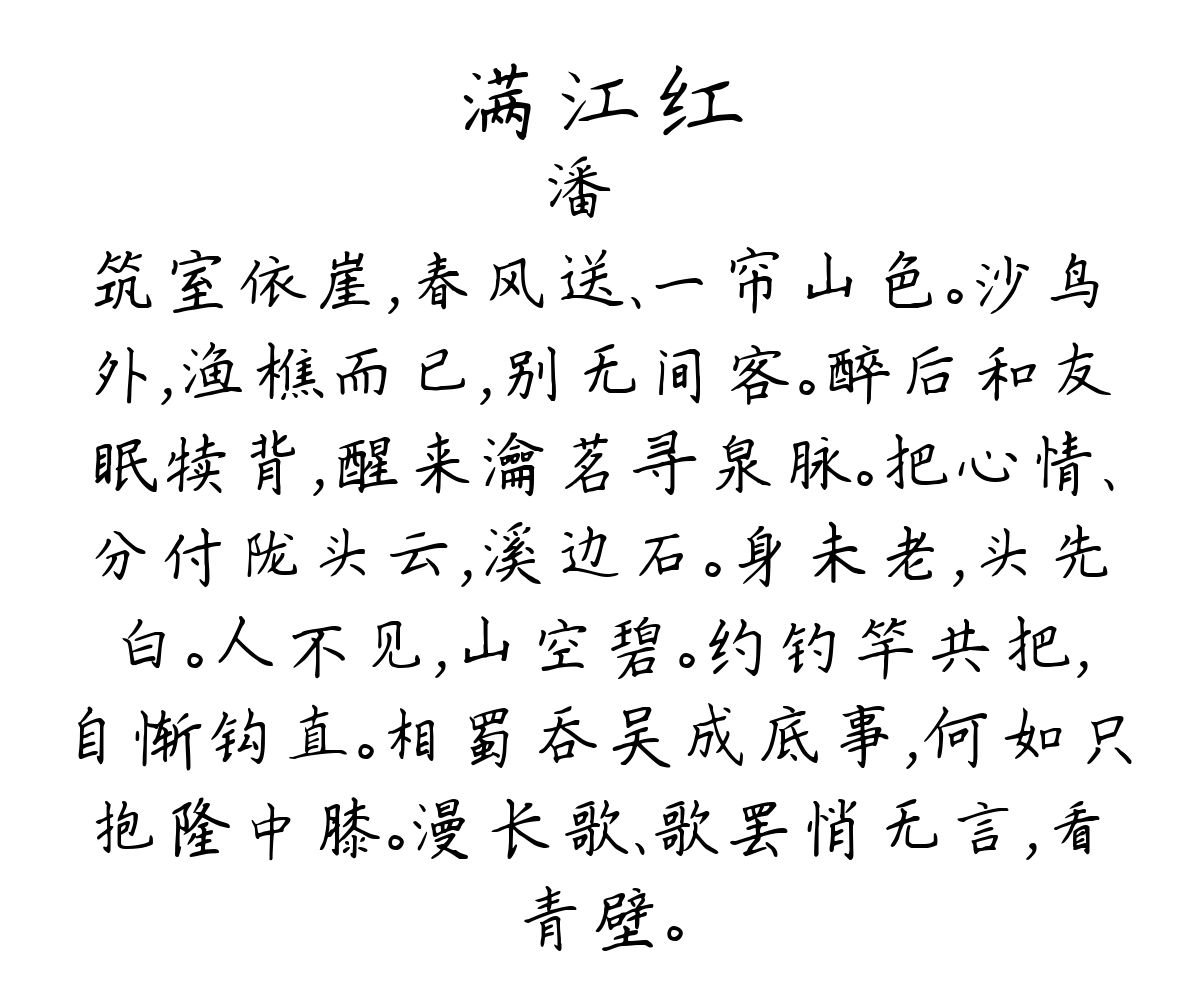 满江红
潘
筑室依崖,春风送、一帘山色。沙鸟
外,渔樵而已,别无间客。醉后和友
眠犊背,醒来瀹茗寻泉脉。把心情、
分付陇头云,溪边石。身未老,头先
白。人不见,山空碧。约钓竿共把,
自惭钩直。相蜀吞吴成底事,何如只
抱隆中膝。漫长歌、歌罢悄无言,看
青壁。